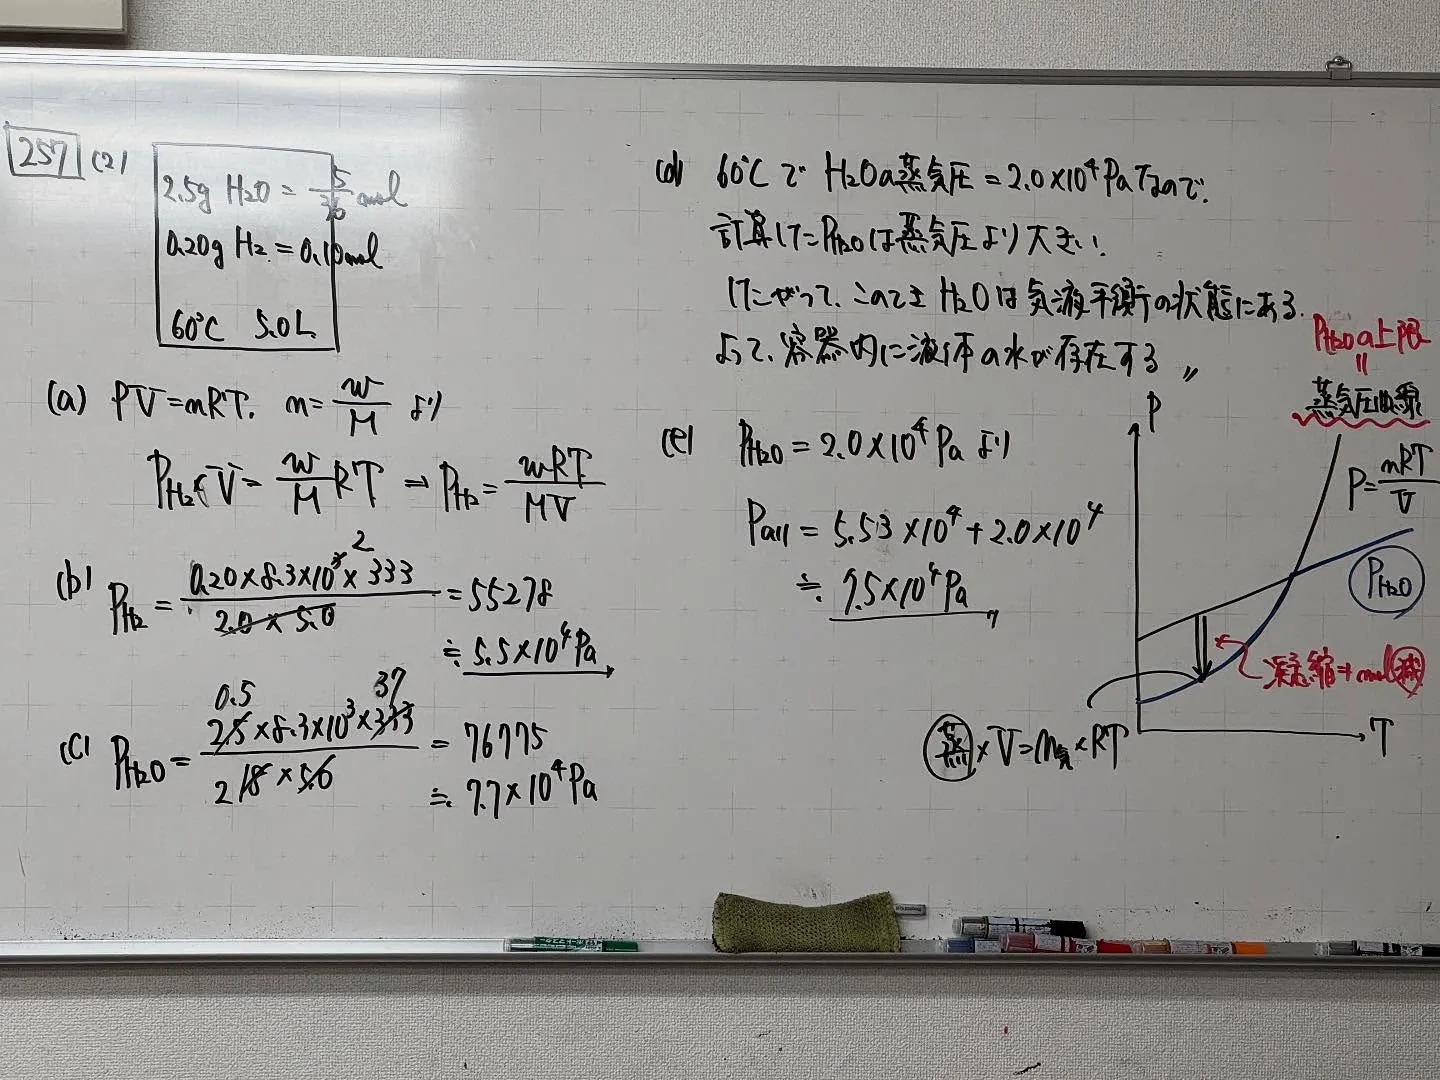 257 (2)
2.5g H2O = 5/36 mol
0.20g H2 = 0.10mol
60℃ 5.0L
(a) PV=nRT. n=w/M より
PH2・V= w/M RT ⇒ PH2= wRT/MV
(b) PH2 = 0.20×8.3×10³×333 / 2.0×5.0 = 55278
2
≒ 5.5×10⁴Pa
(c) PH2O = 2.5×8.3×10³×333 / 18×5.0 = 76775
0.5 37
2
≒ 7.7×10⁴Pa
(d) 60℃で H2Oの蒸気圧=2.0×10⁴Paなので.
計算したPH2Oは蒸気圧より大きい.
したがって、このとき H2Oは気液平衡の状態にある.
よって、容器内に液体の水が存在する〃
(e) PH2O = 2.0×10⁴Pa より
Pall = 5.53×10⁴+2.0×10⁴
≒ 7.5×10⁴Pa〃
PH2Oの上限
=
蒸気圧曲線
P
P=nRT/V
PH2O
凝縮→mol減
T
蒸×V=n気×RT